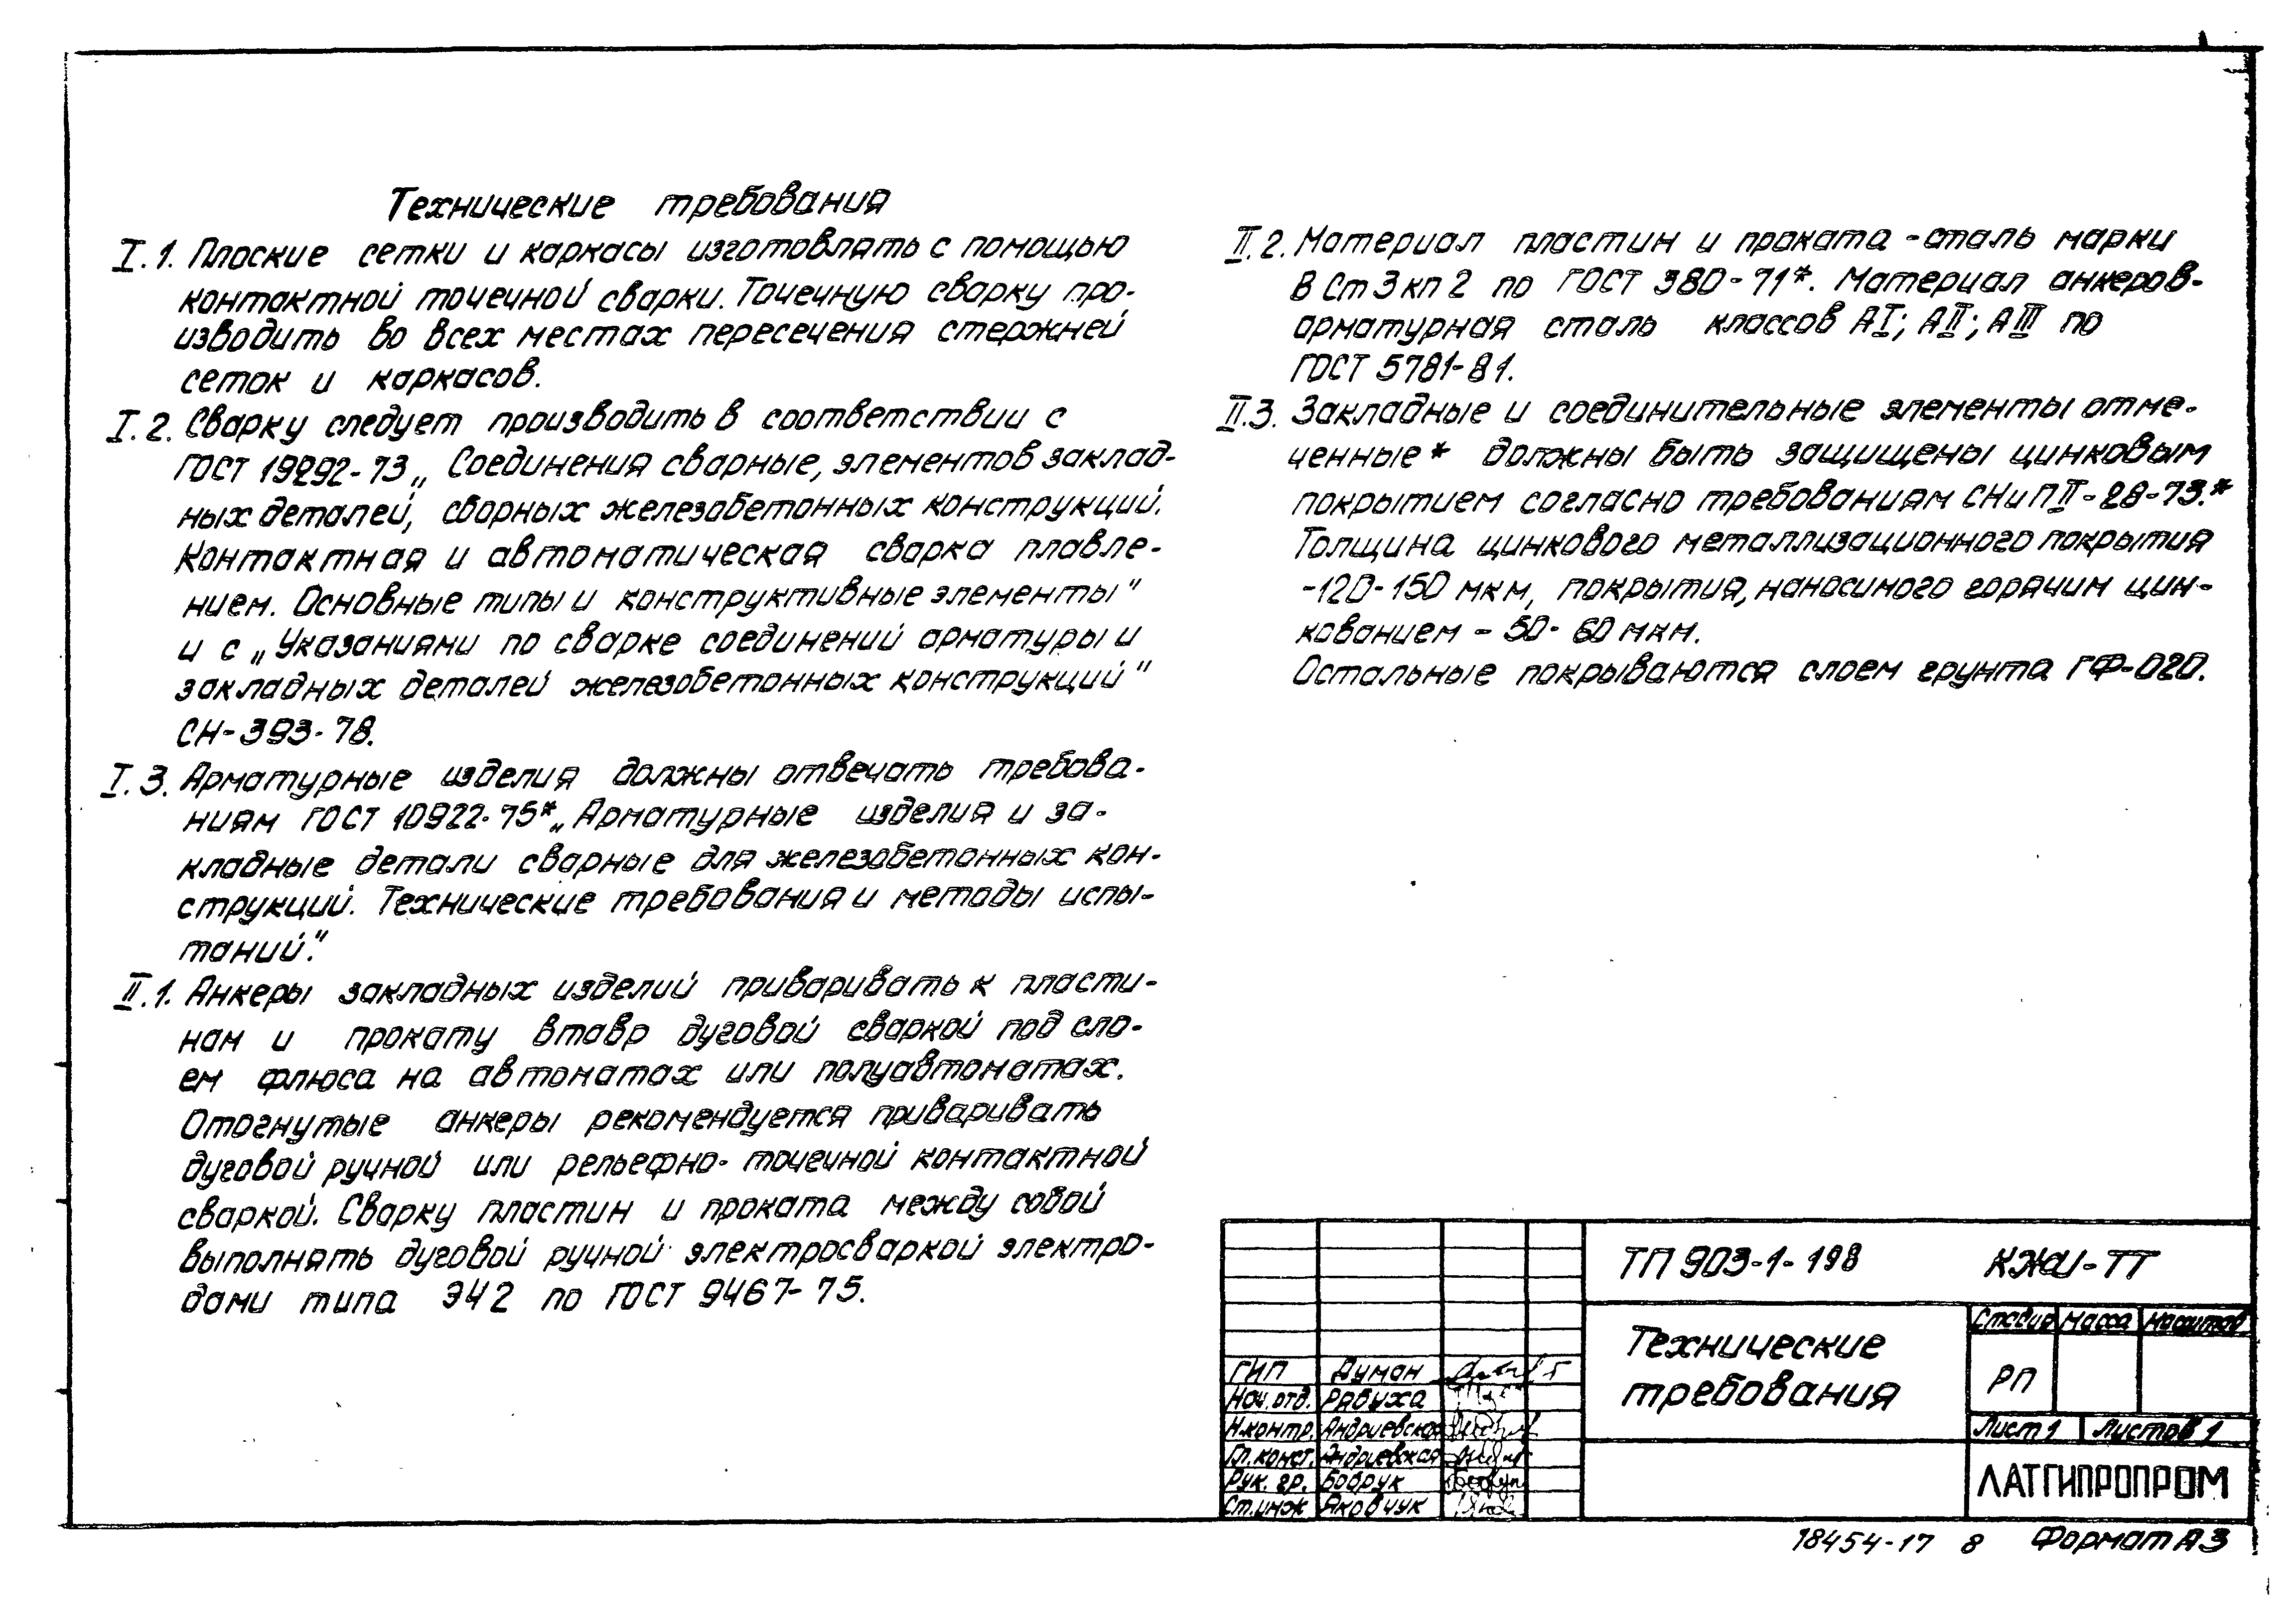 Технические требования
I.1. Плоские сетки и каркасы изготовлять с помощью
контактной точечной сварки. Точечную сварку про-
изводить во всех местах пересечения стержней
сеток и каркасов.
I.2. Сварку следует производить в соответствии с
ГОСТ 19292-73 „Соединения сварные, элементов заклад-
ных деталей, сборных железобетонных конструкций.
Контактная и автоматическая сварка плавле-
нием. Основные типы и конструктивные элементы"
и с „Указаниями по сварке соединений арматуры и
закладных деталей железобетонных конструкций"
СН-393-78.
I.3. Арматурные изделия должны отвечать требова-
ниям ГОСТ 10922-75* „Арматурные изделия и за-
кладные детали сварные для железобетонных кон-
струкций. Технические требования и методы испы-
таний."
II.1. Анкеры закладных изделий приваривать к пласти-
нам и прокату втавр дуговой сваркой под сло-
ем флюса на автоматах или полуавтоматах.
Отогнутые анкеры рекомендуется приваривать
дуговой ручной или рельефно-точечной контактной
сваркой. Сварку пластин и проката между собой
выполнять дуговой ручной электросваркой электро-
дами типа Э42 по ГОСТ 9467-75.
II.2. Материал пластин и проката - сталь марки
В Ст 3 кп 2 по ГОСТ 380-71*. Материал анкеров-
арматурная сталь классов АI; АII; АIII по
ГОСТ 5781-81.
II.3. Закладные и соединительные элементы отме-
ченные * должны быть защищены цинковым
покрытием согласно требованиям СНиП II-28-73.*
Толщина цинкового металлизационного покрытия
-120-150 мкм, покрытия, наносимого горячим цин-
кованием - 50-60 мкм.
Остальные покрываются слоем грунта ГФ-020.
ТП 903-1-198 КЖИ-ТТ
Технические
требования
Стадия Масса Масштаб
РП
Лист 1 Листов 1
ЛАТГИПРОПРОМ
ГИП Думан
Нач. отд. Рябуха
Н.контр. Андриевская
Гл. конст. Андриевская
Рук. гр. Бобрук
Ст. инж Яковчук
18454-17 8 Формат А3